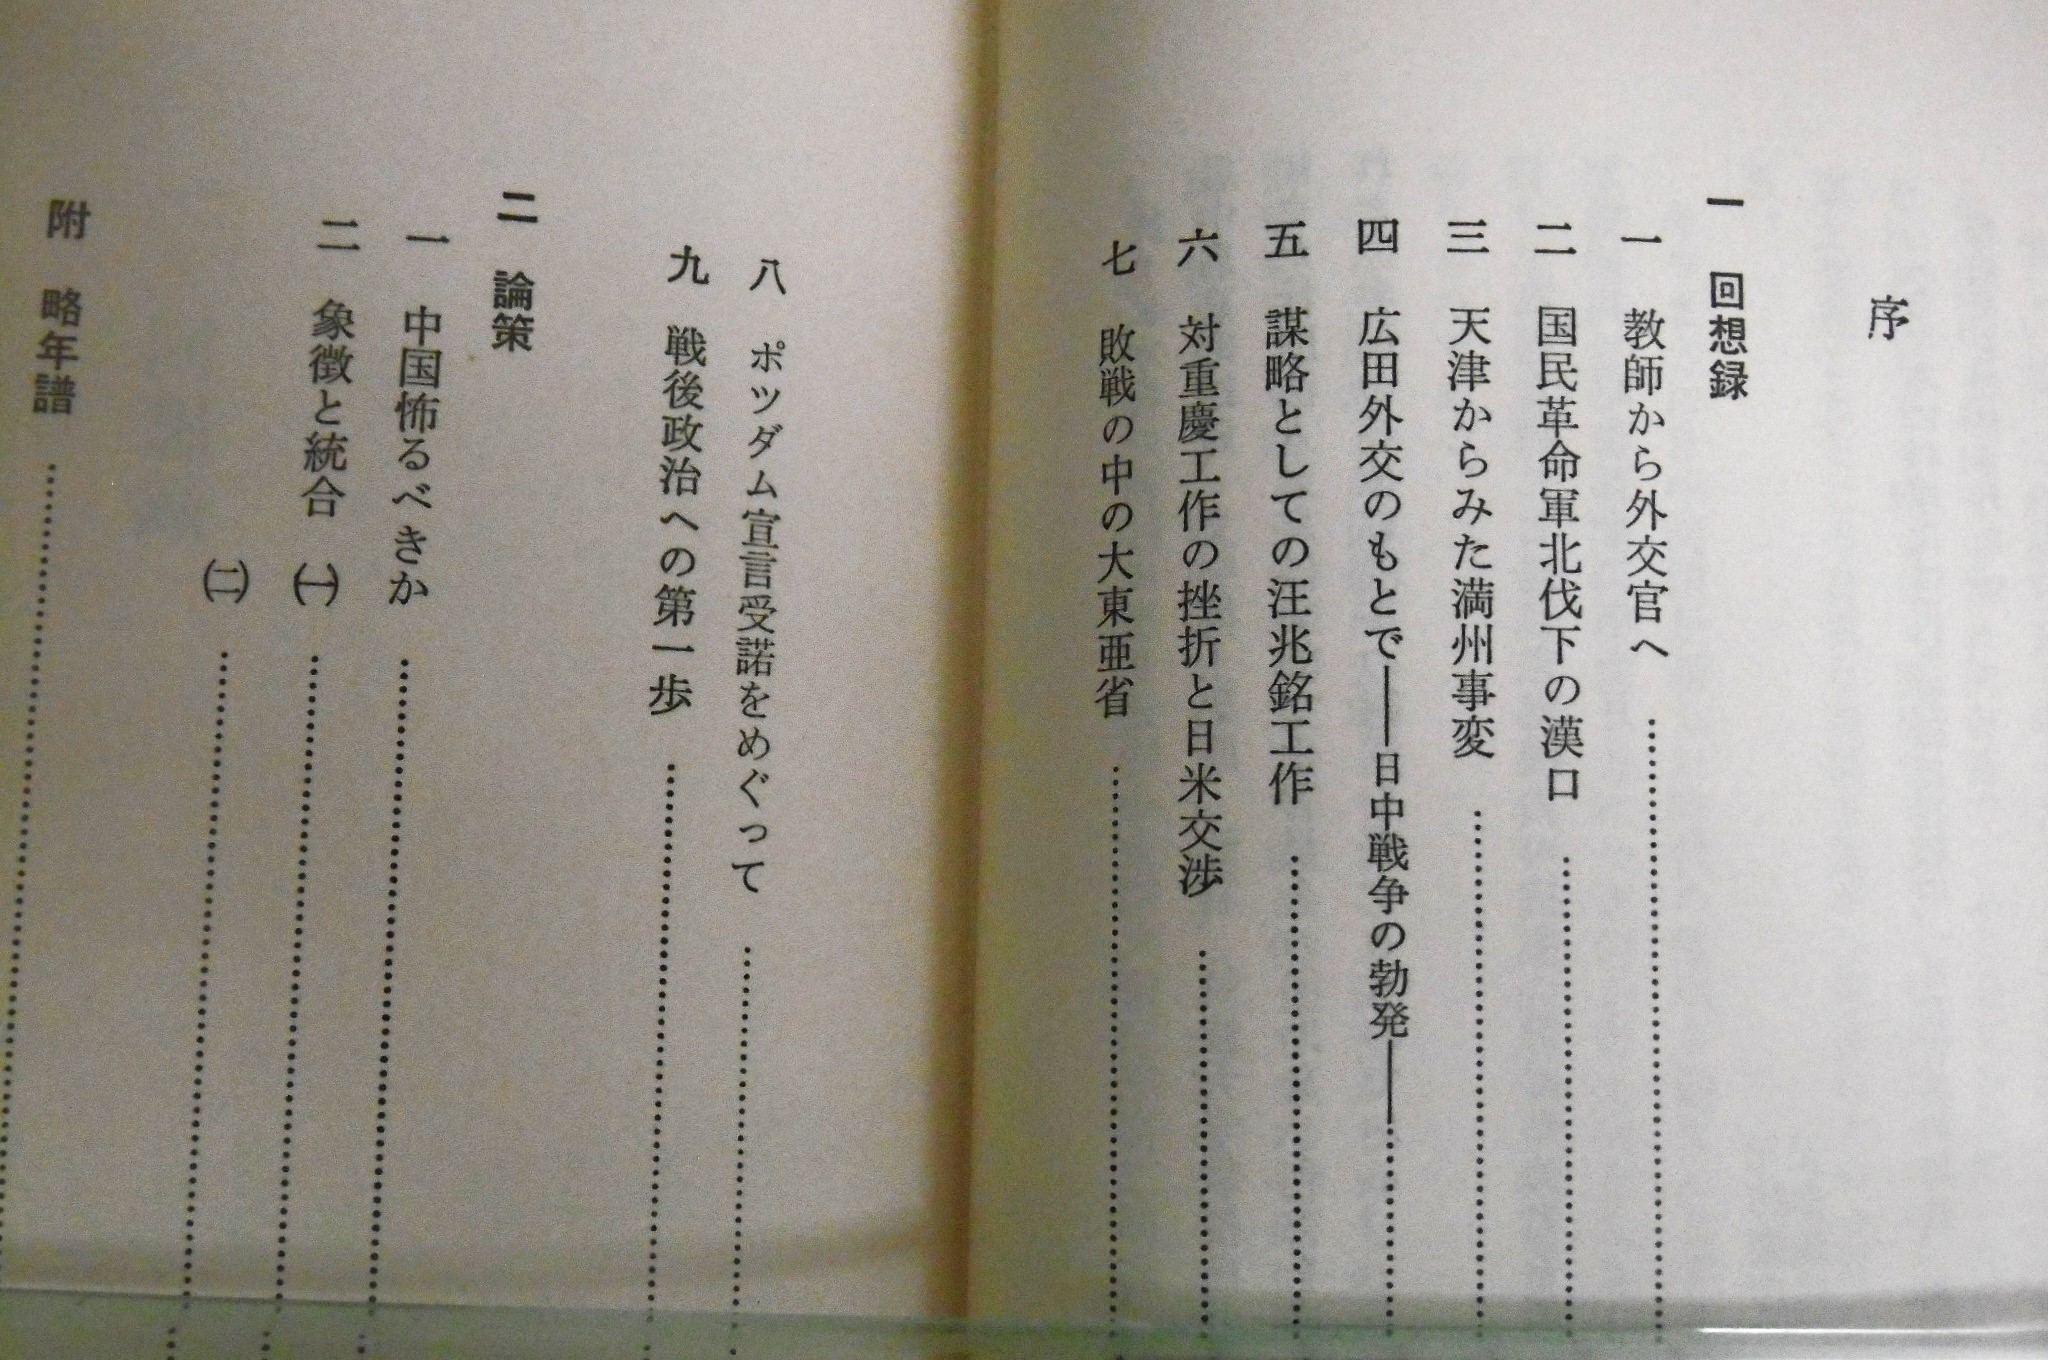 序
一 回想録
一 教師から外交官へ
二 国民革命軍北伐下の漢口
三 天津からみた満州事変
四 広田外交のもとで——日中戦争の勃発——
五 謀略としての汪兆銘工作
六 対重慶工作の挫折と日米交渉
七 敗戦の中の大東亜省
八 ポツダム宣言受諾をめぐって
九 戦後政治への第一歩
二 論策
一 中国怖るべきか
二 象徴と統合 ㈠
㈡
附 略年譜